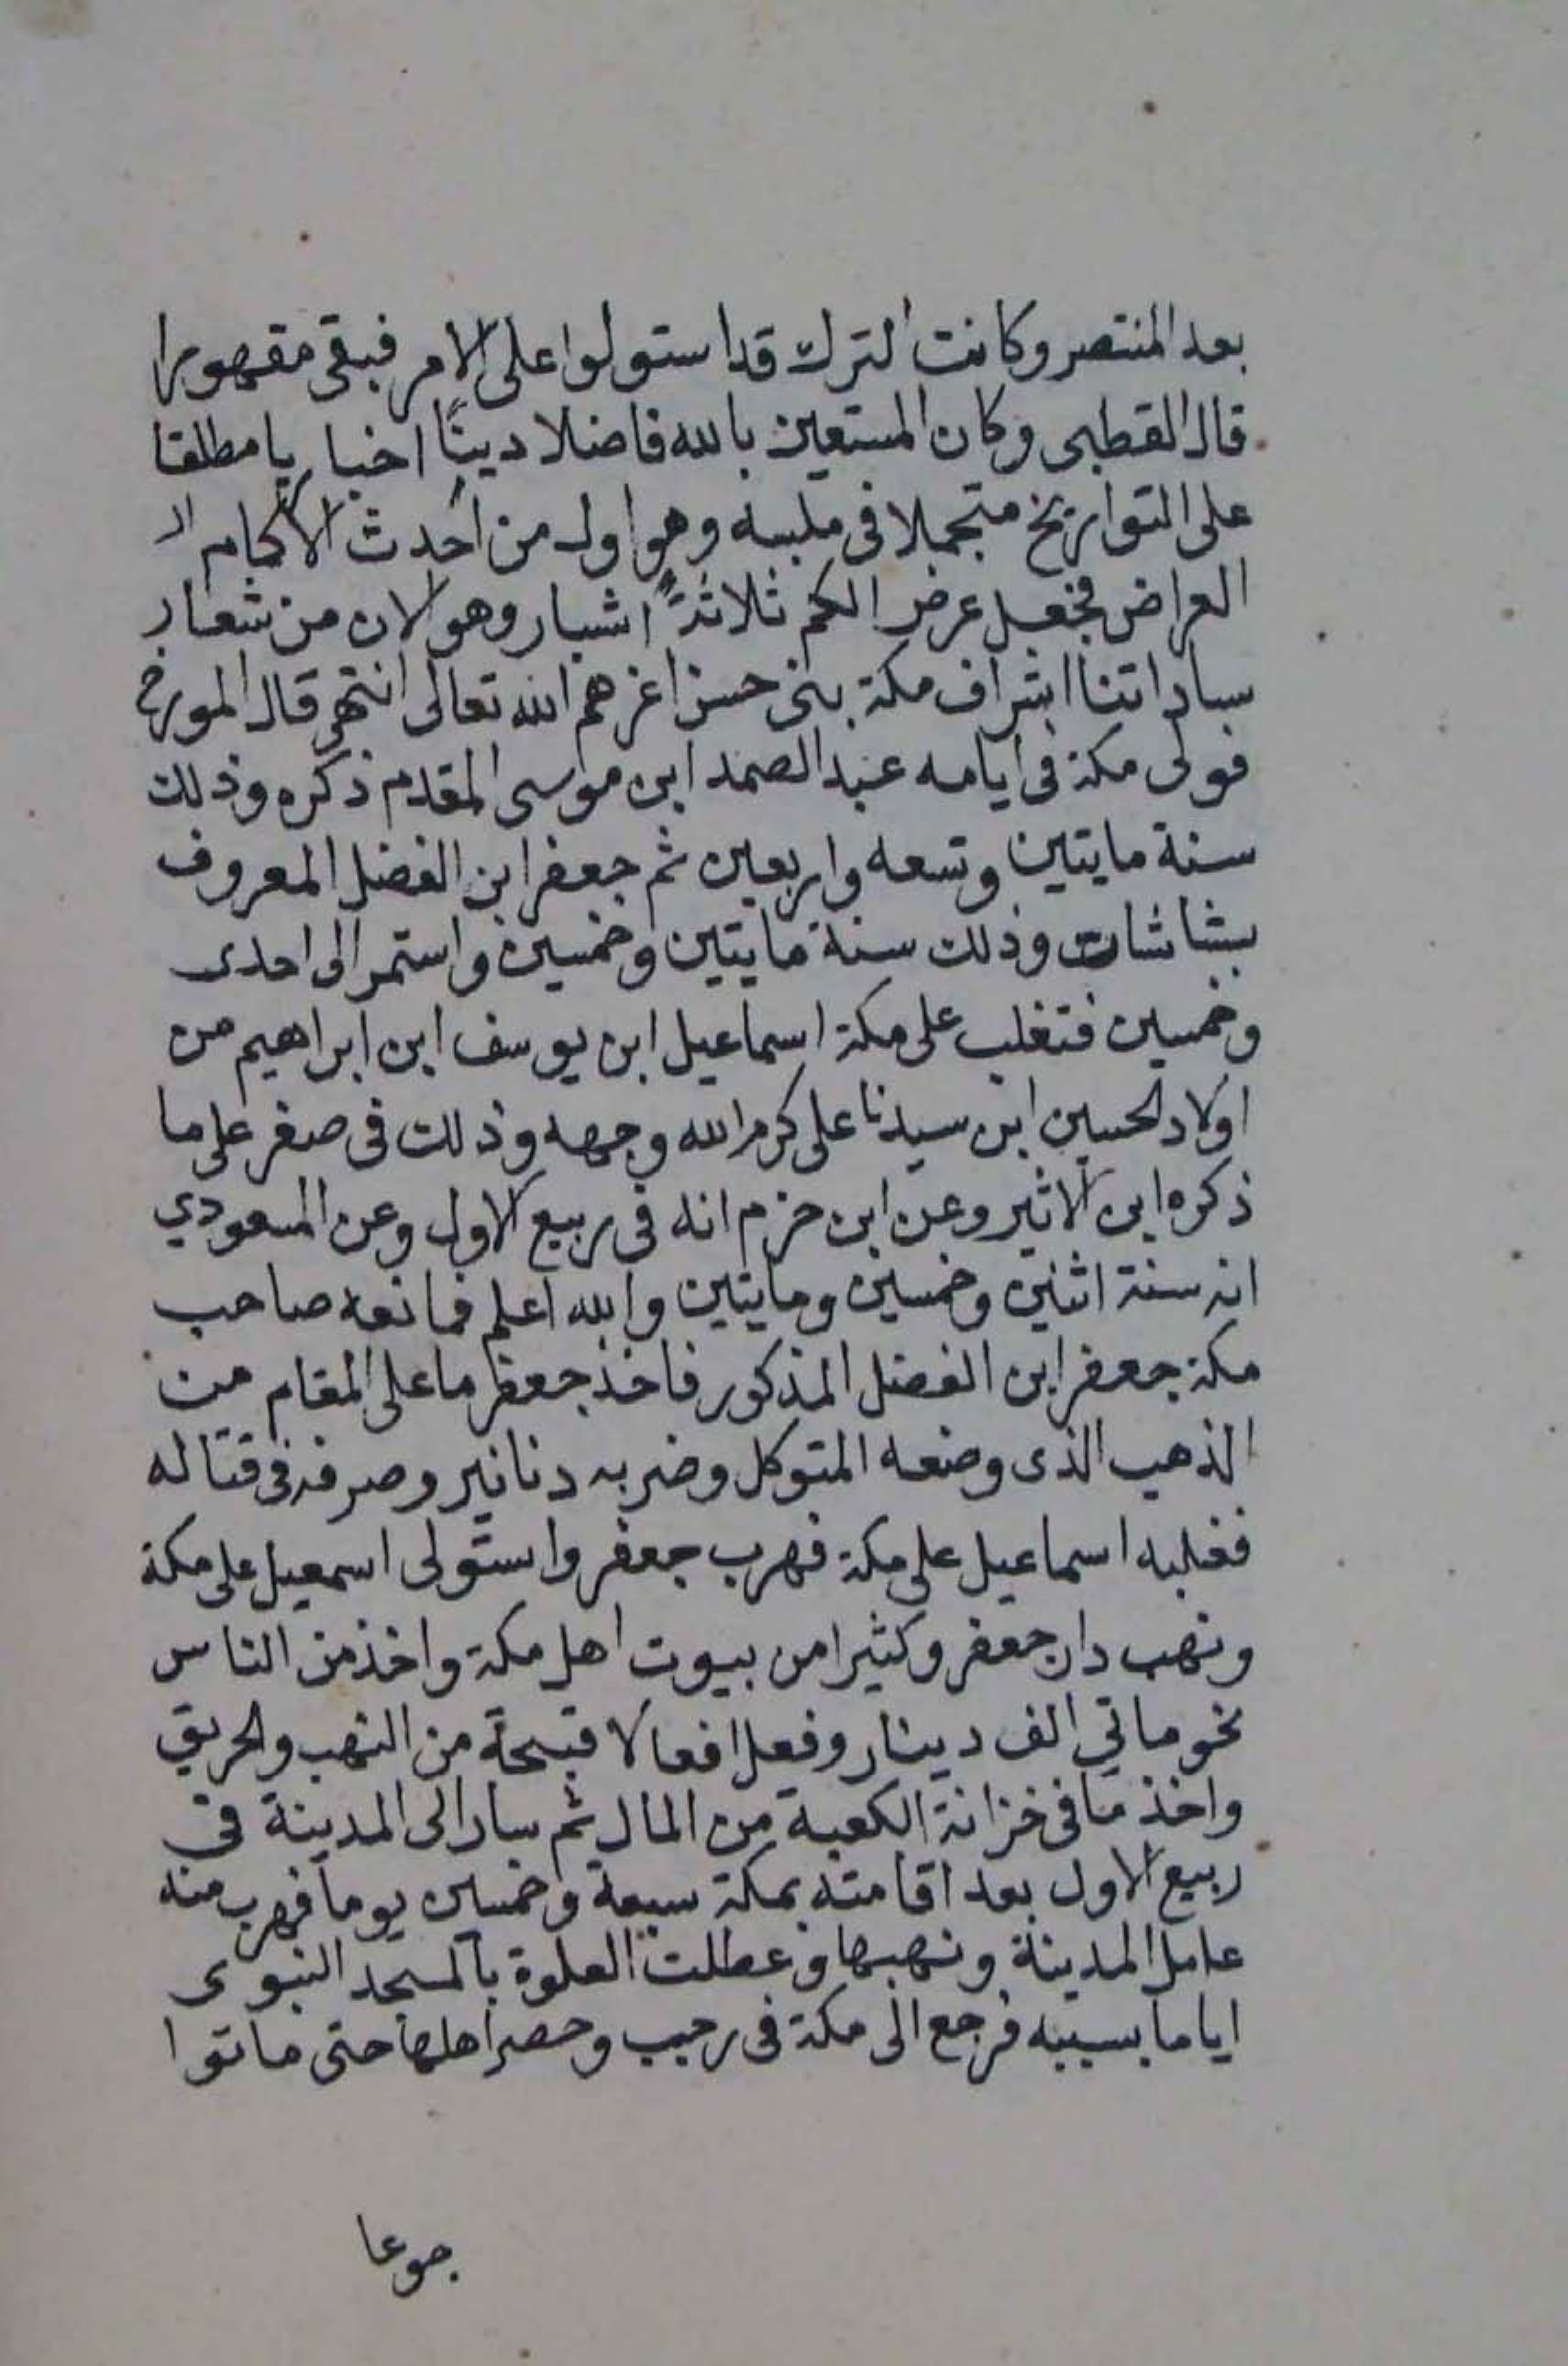 بعد المنتصر وكانت الترك قد استولوا على الامر فبقى مقهورا
قال القطبى وكان المستعين بالله فاضلا دينًا اخباريا مطلقا
على التواريخ متجملا فى ملبسه وهو اول من احدث الاكمام ال
العراض فجعل عرض الكم ثلاثة اشبار وهو الان من شعار
ساداتنا اشراف مكة بنى حسن اعزهم الله تعالى انتهى قال المورخ
فولى مكة فى ايامه عبد الصمد ابن موسى المقدم ذكره وذلك
سنة مايتين وتسعه واربعين ثم جعفر ابن الفضل المعروف
بشاشات وذلك سنة مايتين وخمسين واستمر الى احدى
وخمسين فتغلب على مكة اسماعيل ابن يوسف ابن ابراهيم من
اولاد الحسين ابن سيدنا على كرم الله وجهه وذلك فى صفر على ما
ذكره ابن الاثير وعن ابن حزم انه فى ربيع الاول وعن المسعودي
انه سنة اثنين وخمسين ومايتين والله اعلم فمانعه صاحب
مكة جعفر ابن الفضل المذكور فاخذ جعفر ما على المقام من
الذهب الذى وضعه المتوكل وضربه دنانير وصرفه فى قتاله
فغلبه اسماعيل على مكة فهرب جعفر واستولى اسمعيل على مكة
ونهب دار جعفر وكثيرا من بيوت اهل مكة واخذ من الناس
نحو ماتي الف دينار وفعل افعالا قبيحة من النهب والحريق
واخذ ما فى خزانة الكعبة من المال ثم سار الى المدينة فى
ربيع الاول بعد اقامته بمكة سبعة وخمسين يوما فهرب منه
عامل المدينة ونهبها وعطلت الصلوة بالمسجد النبوى
اياما بسببه فرجع الى مكة فى رجب وحصر اهلها حتى ماتوا
جوعا